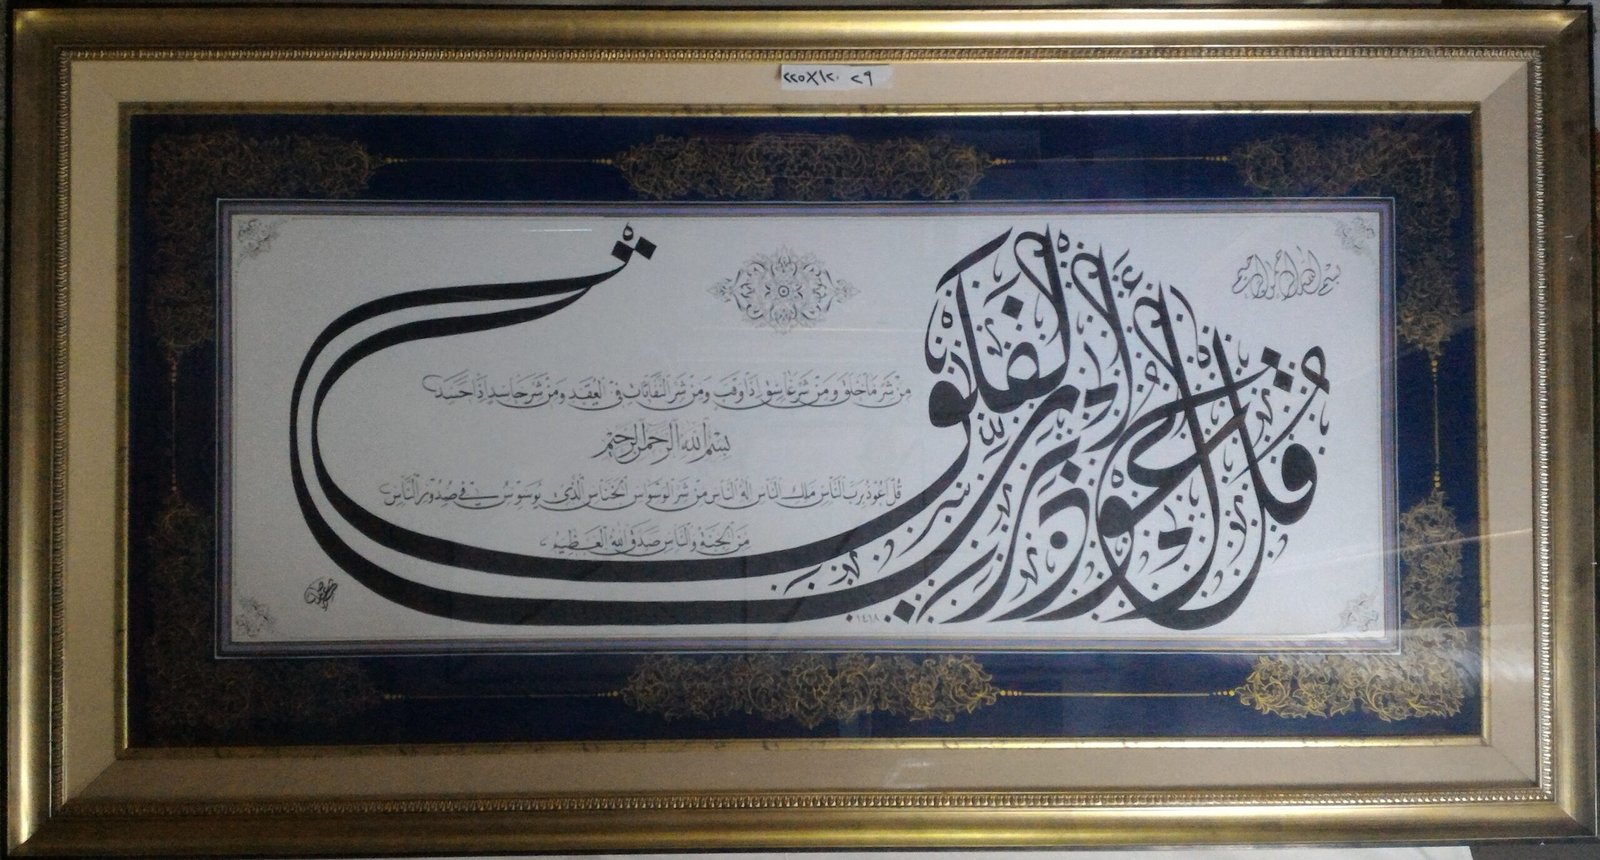 ٢٢٥X١٢٠ ٢٩
بسم الله الرحمن الرحيم
قل أعوذ برب الفلق
مِنْ شَرِّ مَا خَلَقَ وَمِنْ شَرِّ غَاسِقٍ إِذَا وَقَبَ وَمِنْ شَرِّ النَّفَّاثَاتِ فِي الْعُقَدِ وَمِنْ شَرِّ حَاسِدٍ إِذَا حَسَدَ
بِسْمِ اللهِ الرَّحْمٰنِ الرَّحِيمِ
قُلْ أَعُوذُ بِرَبِّ النَّاسِ مَلِكِ النَّاسِ إِلٰهِ النَّاسِ مِنْ شَرِّ الْوَسْوَاسِ الْخَنَّاسِ الَّذِي يُوَسْوِسُ فِي صُدُورِ النَّاسِ
مِنَ الْجِنَّةِ وَالنَّاسِ صَدَقَ اللهُ الْعَظِيمُ
١٤١٨